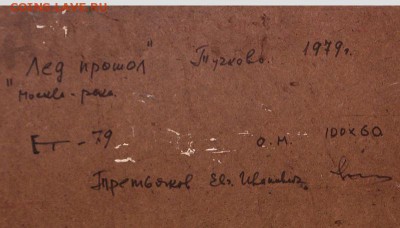 COINS.LAVE.RU
"Лед прошол" Тучково. 1979г.
"Москва-река.
ЕТ-79 о.м. 100х60
Третьяков Евг. Иванович.